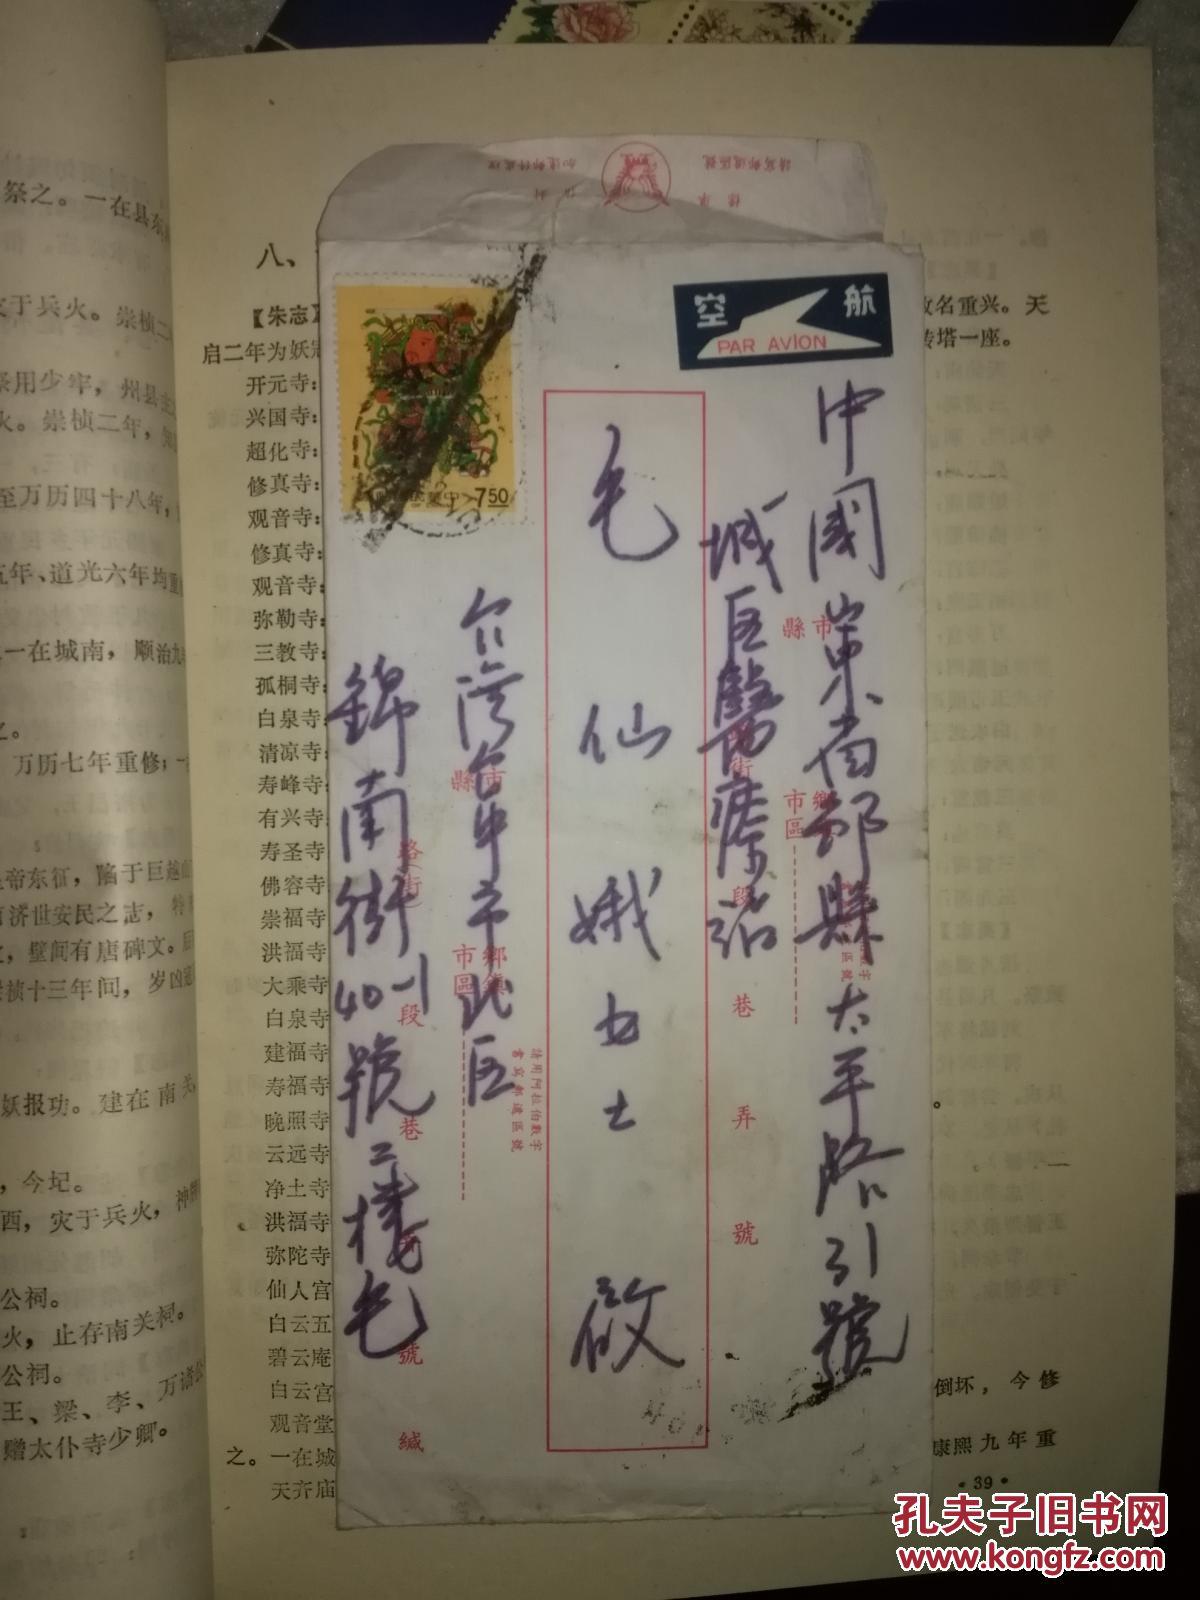 祭之。一在县东
灾于兵火。崇桢二
祭用少牢，州县主
火。崇桢二年，
至万历四十八年，
五年、道光六年均重
一在城南，顺治九
之。
万历七年重修；一
皇帝东征，陷于巨越山
有济世安民之志，特
壁间有唐碑文。
崇桢十三年间，岁凶
妖报功。建在南关
，今圮。
西，灾于兵火，神
公祠。
火，止存南关祠。
公祠。
王、梁、李、万诸公
赠太仆寺少卿。
八、
【朱志】
改名重兴。天
启二年为妖寇
砖塔一座。
开元寺：
兴国寺：
超化寺：
修真寺：
观音寺：
修真寺：
观音寺：
弥勒寺：
三教寺：
孤桐寺：
白泉寺：
清凉寺：
寿峰寺：
有兴寺
寿圣寺
佛容寺
崇福寺
洪福寺
大乘寺
白泉寺
建福寺
寿福寺
晚照寺
云远寺
净土寺
洪福寺
弥陀寺
仙人宫
白云五
碧云庵
白云宫
观音堂
倒坏，今修
之。一在城
康熙九年重
天齐庙
·39·
請寫郵遞區號
加速郵件處理
標準信封
航空
PAR AVION
7.50
中國山東省鄒縣太平路引號
城區醫療站
毛仙娥女士啟
台灣台中市北區
錦南街40-1號二樓毛
縣市
鄉鎮市區
路街
段
巷
弄
號
縣市
鄉鎮市區
路(街)
段
巷
號
緘
請用阿拉伯數字
書寫郵遞區號
孔夫子旧书网
www.kongfz.com